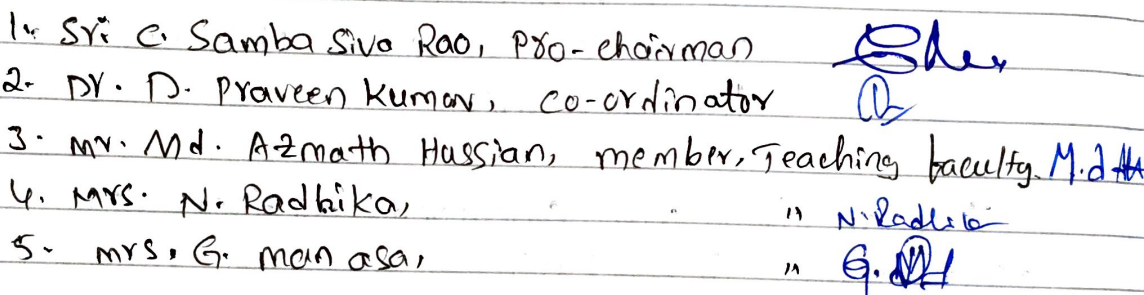 1. Sri C. Samba Siva Rao, Pro-chairman
2. Dr. D. Praveen Kumar, co-ordinator
3. Mr. Md. Azmath Hussian, member, Teaching faculty. M.d AH
4. Mrs. N. Radhika, " " N. Radhika
5. mrs. G. manasa, " G.